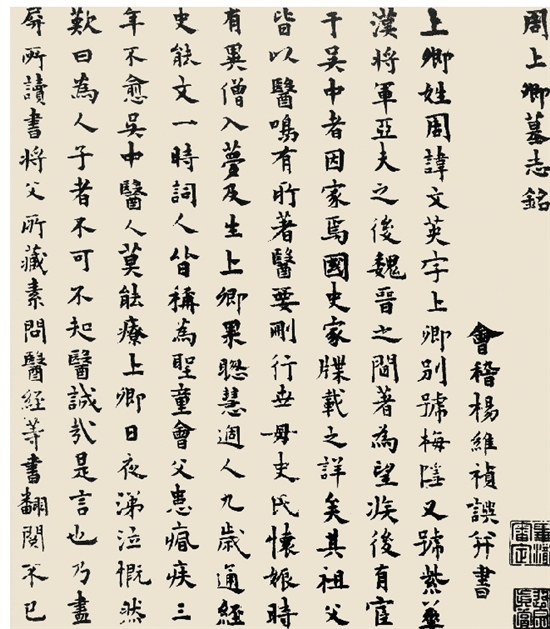 周上卿墓志銘
會稽楊維禎譔并書
上卿姓周諱文英字上卿別號梅隱又號紫華
漢將軍亞夫之後魏晉之間著為望族後有宦
于吳中者因家焉國史家牒載之詳矣其祖父
皆以醫鳴有所著醫要刪行世母史氏懷娠時
有異僧入夢及生上卿果聰慧過人九歲通經
史能文一時詞人皆稱為聖童會父患痼疾三
年不愈吳中醫人莫能療上卿日夜涕泣慨然
歎曰為人子者不可不知醫誠哉是言也乃盡
屏所讀書將父所藏素問醫經等書翻閱不已